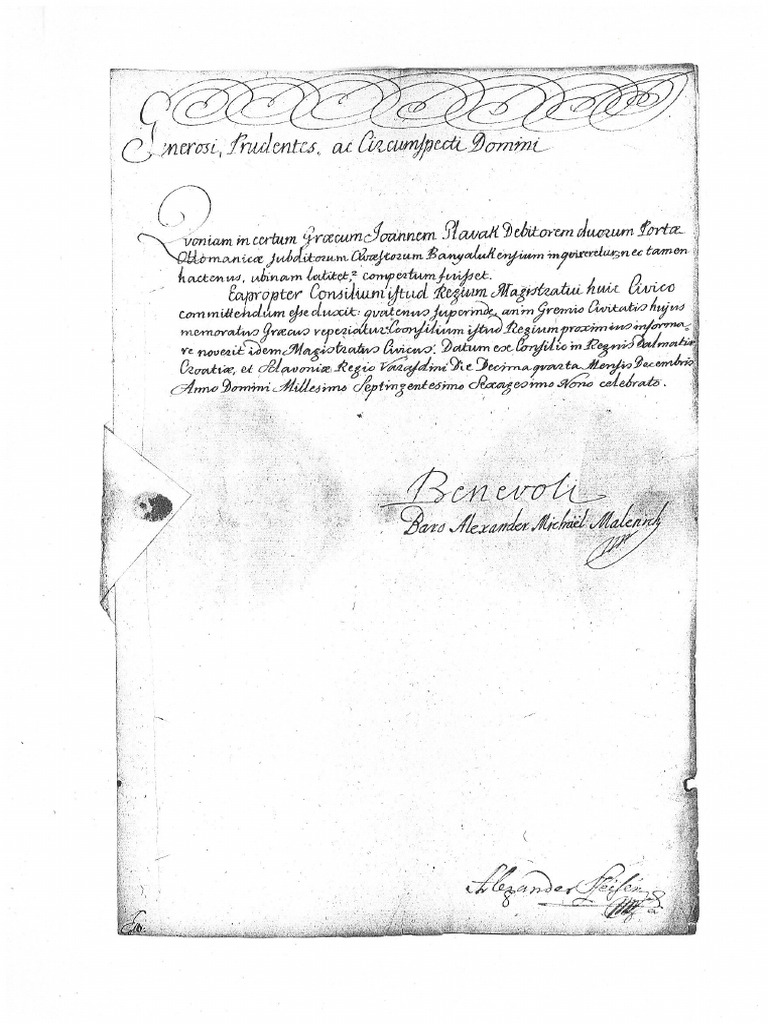 Generosi, Prudentes, ac Circumspecti Domini
Quoniam in certum Græcum Joannem Slavak Debitorem duorum Portæ
Ottomanicæ subditorum Quæstorum Banyalukensium inquireretur, nec tamen
hactenus, ubinam latitet, compertum fuisset.
Eapropter Consilium istud Regium Magistratui huic Civico
committendum esse duxit: quatenus superinde, an in Gremio Civitatis hujus
memoratus Græcus reperiatur: Consilium istud Regium proximius informa-
re noverit idem Magistratus Civicus. Datum ex Consilio in Regnis Dalmatiæ
Croatiæ, et Sclavoniæ Regio Varasdini Die Decima quarta Mensis Decembris
Anno Domini Millesimo Septingentesimo Sexagesimo Nono celebrato.
Benevoli
Baro Alexander Michaël Malenich
Alexander